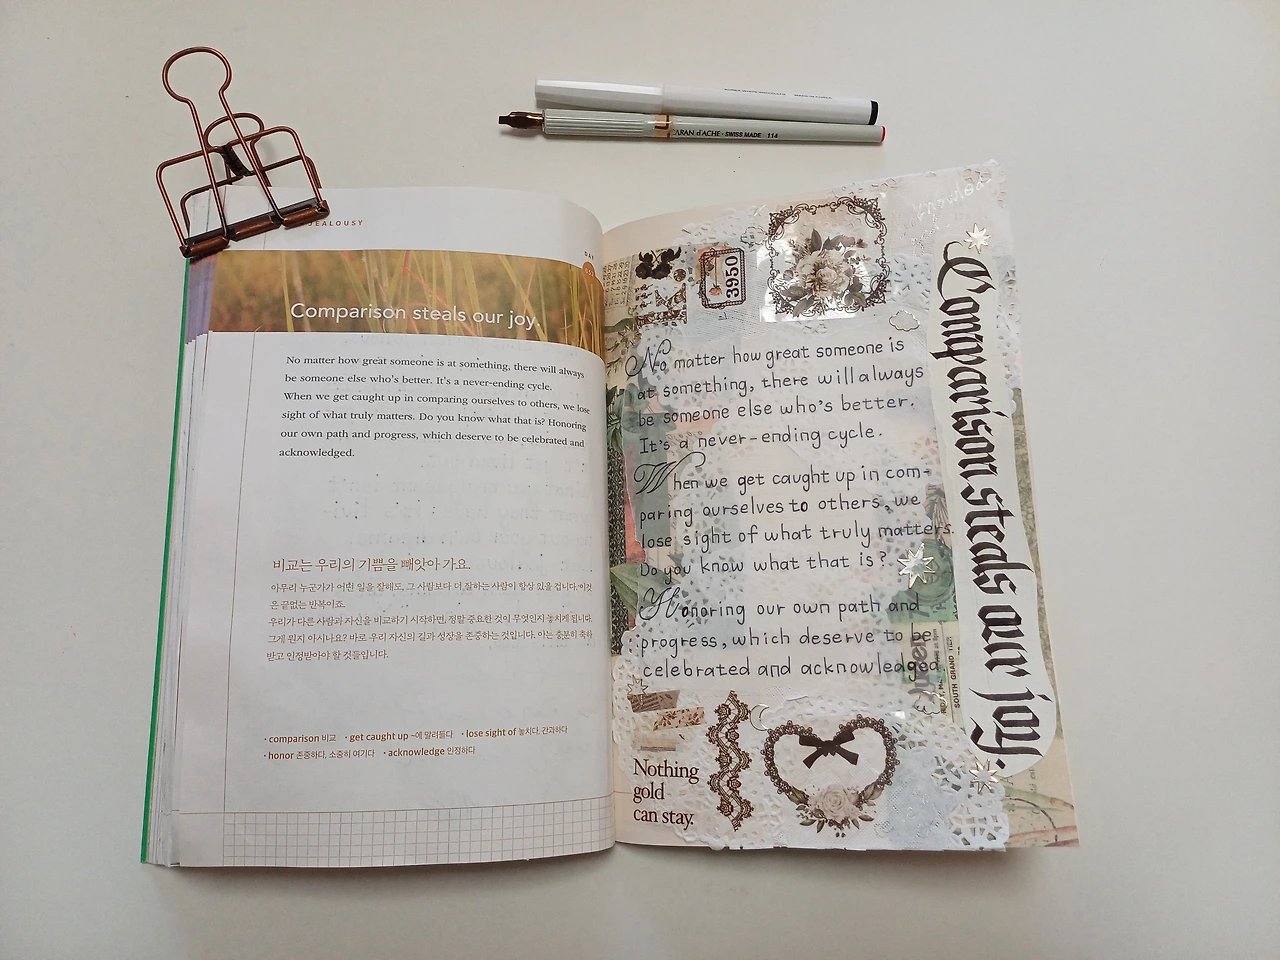 CARAN d'ACHE · SWISS MADE 114
JEALOUSY
DAY
Comparison steals our joy.
No matter how great someone is at something, there will always
be someone else who's better. It's a never-ending cycle.
When we get caught up in comparing ourselves to others, we lose
sight of what truly matters. Do you know what that is? Honoring
our own path and progress, which deserve to be celebrated and
acknowledged.
비교는 우리의 기쁨을 빼앗아 가요.
아무리 누군가가 어떤 일을 잘해도, 그 사람보다 더 잘하는 사람이 항상 있을 겁니다. 이것
은 끝없는 반복이죠.
우리가 다른 사람과 자신을 비교하기 시작하면, 정말 중요한 것이 무엇인지 놓치게 됩니다.
그게 뭔지 아시나요? 바로 우리 자신의 길과 성장을 존중하는 것입니다. 이는 충분히 축하
받고 인정받아야 할 것들입니다.
· comparison 비교 · get caught up ~에 말려들다 · lose sight of 놓치다, 간과하다
· honor 존중하다, 소중히 여기다 · acknowledge 인정하다
3950
No matter how great someone is
at something, there will always
be someone else who's better.
It's a never-ending cycle.
When we get caught up in com-
paring ourselves to others, we
lose sight of what truly matters.
Do you know what that is?
Honoring our own path and
progress, which deserve to be
celebrated and acknowledged.
Comparison steals our joy.
Queen
SOUTH GRAND TIER
Nothing
gold
can stay.